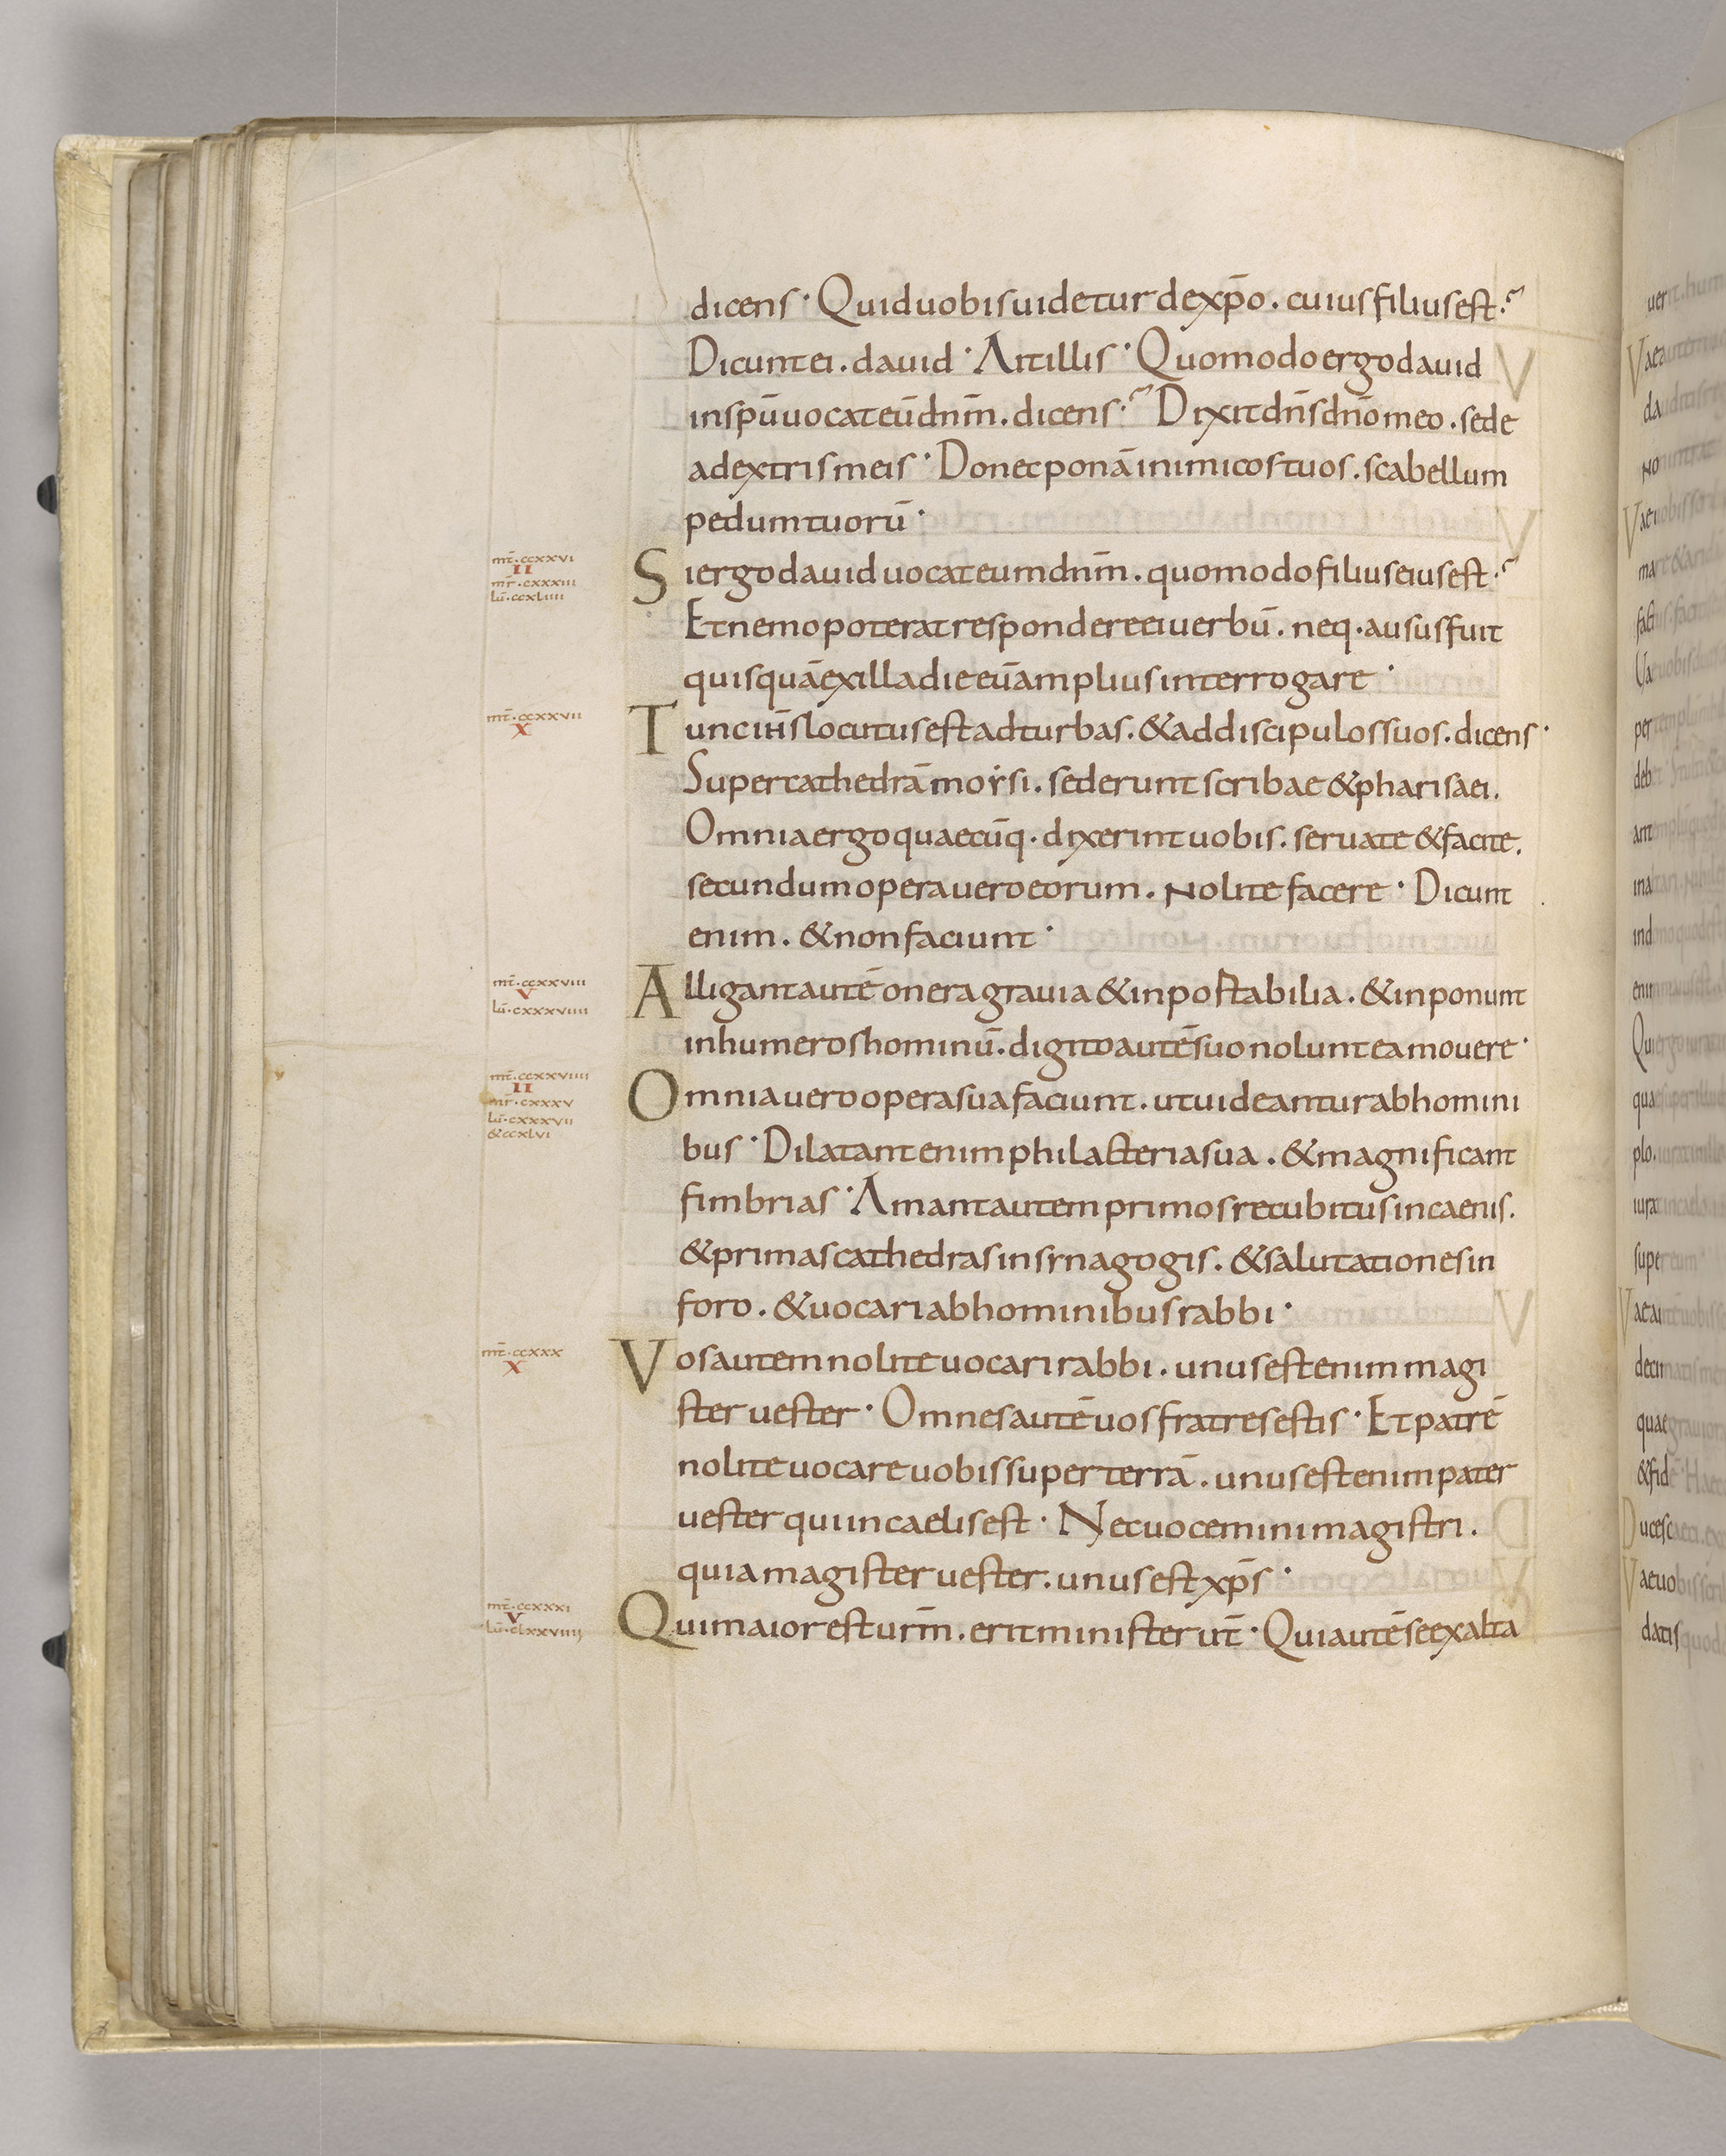 dicens · Quid uobis uidetur de xp̄o . cuius filius est ·?
Dicunt ei . dauid · Ait illis · Quomodo ergo dauid
in spū uocat eū dn̄m . dicens ·? Dixit dn̄s dn̄o meo . sede
a dextris meis · Donec ponā inimicos tuos . scabellum
pedum tuorū ·
mt̄ · ccxxvi
II
mr̄ · cxxxiii
lū · ccxliiii
Si ergo dauid uocat eum dn̄m . quomodo filius eius est ·?
Et nemo poterat respondere ei uerbū . neq · ausus fuit
quisquā ex illa die eū amplius interrogare ·
mt̄ · ccxxvii
X
Tunc ih̄s locutus est ad turbas . & ad discipulos suos . dicens ·
Super cathedrā moysi . sederunt scribae & pharisaei .
Omnia ergo quaecūq · dixerint uobis . seruate & facite .
secundum opera uero eorum . nolite facere · Dicunt
enim . & non faciunt ·
mt̄ · ccxxviii
V
lū · cxxxviiii
Alligant autē onera grauia & inpostabilia . & inponunt
in humeros hominū . digito autē suo nolunt ea mouere ·
mt̄ · ccxxviiii
II
mr̄ · cxxxv
lū · cxxxvii
& ccxlvi
Omnia uero opera sua faciunt . ut uideantur ab homini
bus · Dilatant enim philacteria sua . & magnificant
fimbrias · Amant autem primos recubitus in caenis .
& primas cathedras in synagogis . & salutationes in
foro . & uocari ab hominibus rabbi ·
mt̄ · ccxxx
X
Vos autem nolite uocari rabbi . unus est enim magi
ster uester · Omnes autē uos fratres estis · Et patrē
nolite uocare uobis super terrā . unus est enim pater
uester qui in caelis est · Nec uocemini magistri .
quia magister uester . unus est xp̄s ·
mt̄ · ccxxxi
V
lū · clxxviiii
Qui maior est urm̄ . erit minister ur̄t · Qui autē se exalta